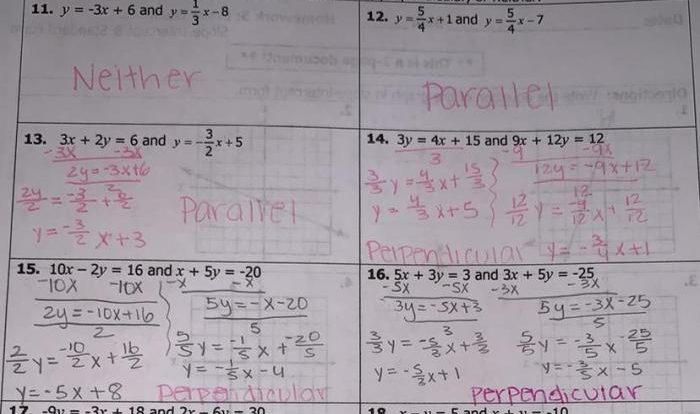 11. y = -3x + 6 and y = 1/3 x - 8
Neither
12. y = 5/4 x + 1 and y = 5/4 x - 7
Parallel
13. 3x + 2y = 6 and y = -3/2 x + 5
-3x -3x
2y = -3x+6
2y/2 = -3/2 + 6/2
Parallel
y = -3/2 x + 3
14. 3y = 4x + 15 and 9x + 12y = 12
3
-9 -9x
12y = -9x+12
12
3/3 y = 4/3 x + 15/3
y = 4/3 x + 5
12/12 y = -9/12 x + 12/12
Perpendicular y = -3/4 x + 1
15. 10x – 2y = 16 and x + 5y = -20
-10x -10x -x -x
2y = -10x+16
2
5y = -x-20
5
2/2 y = -10/2 x + 16/2
5/5 y = -1/5 x + -20/5
y = -1/5 x - 4
y = -5x + 8 Perpendicular
16. 5x + 3y = 3 and 3x + 5y = -25
-5x -5x -3x -3x
3y = -5x+3
3
5y = -3x-25
5
3/3 y = -5/3 x + 3/3
5/5 y = -3/5 x - 25/5
y = -5/3 x + 1
y = -3/5 x - 5
Perpendicular
17. -9y = -3x + 18 and 2x – 6y = 30
18. x – y = 5 and x + y = -10